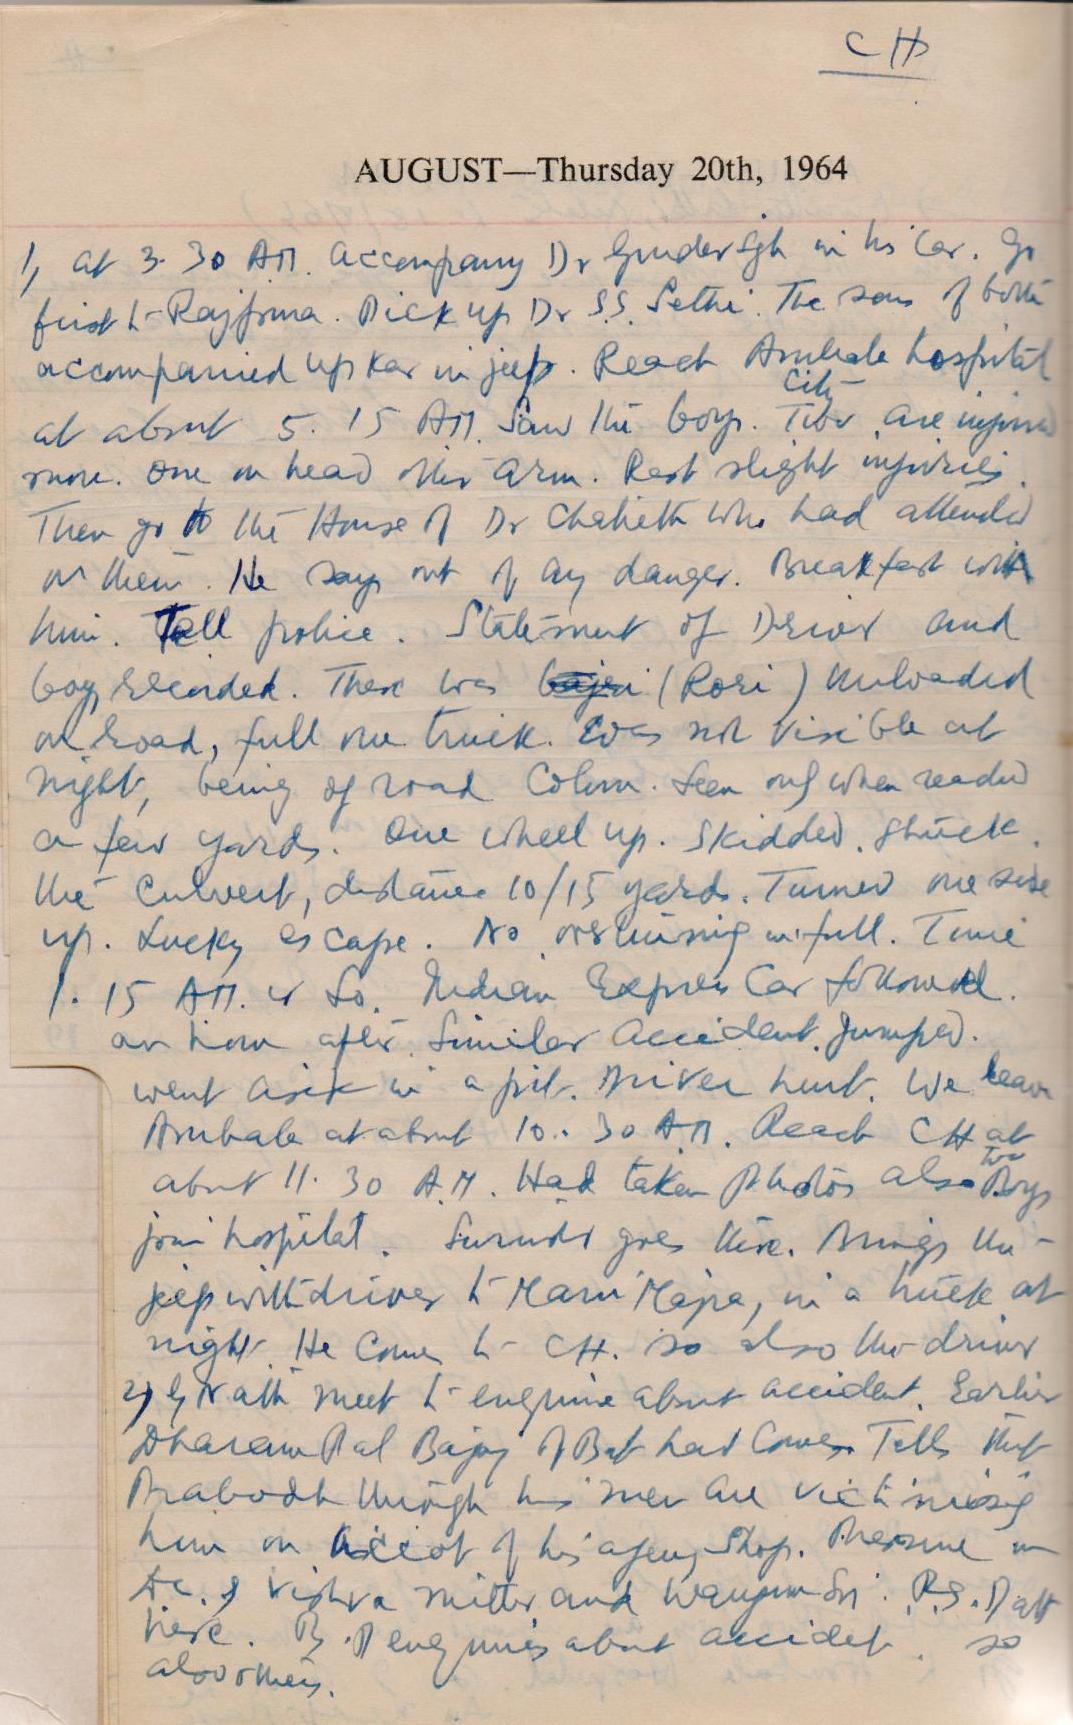 CH
AUGUST—Thursday 20th, 1964
1, at 3.30 AM. accompany Dr in his Car. Go
first to Rajpura. Pick up Dr S.S. Sethi. The sons of both
accompanied in jeep. Reach Ambala hospital
City
at about 5.15 AM. Saw the boys. Two are injured
more. One on head other arm. Rest slight injuries.
Then go to the House of Dr who had attended
on them. He says out of any danger. Breakfast with
him. Tell police. Statement of Driver and
boys recorded. There was (Rori) unloaded
on road, full one truck. Was not visible at
night, being of road Colour. Seen only when reached
a few yards. One wheel up. Skidded. Struck
the Culvert, distance 10/15 yards. Turned one side
up. Lucky escape. No in full. Time
1.15 AM. or so. Indian Express Car followed.
an hour after. Similar accident. Jumped.
went in a pit. Driver hurt. We leave
Ambala at about 10.30 AM. Reach CH at
about 11.30 A.M. Had taken photos also two Boys
join hospital. goes there. Brings the
jeep with driver to Mani Majra, in a truck at
night. He comes to CH. so also the driver
2) meet to enquire about accident. Earlier
Dharam Pal Bajaj of had come. Tells that
Prabodh through his men are victimising
him on of his agency shop.
Vishva Mitter and
here. enquires about accident. so
also others.